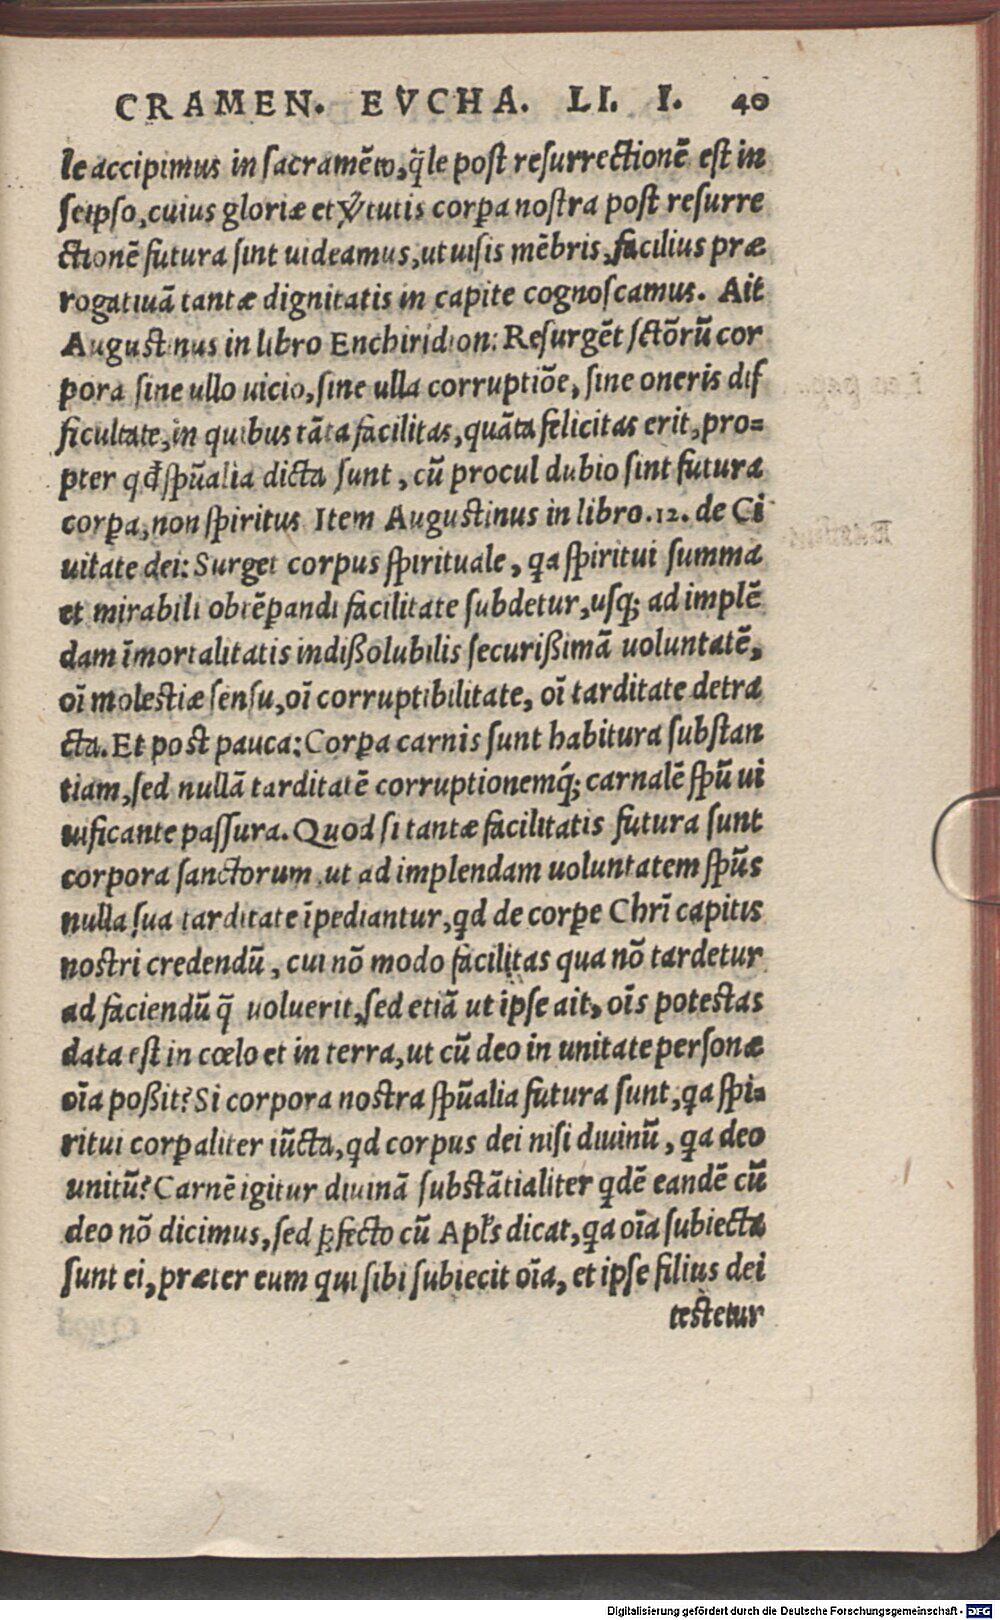 CRAMEN. EVCHA. LI. I. 40
le accipimus in sacramẽto, q̃le post resurrectionẽ est in
seipso, cuius gloriæ et ꝟtutis corꝑa nostra post resurre
ctionẽ futura sint uideamus, ut uisis mẽbris, facilius præ
rogatiuã tantæ dignitatis in capite cognoscamus. Ait
Augustinus in libro Enchiridion: Resurgẽt sctõrũ cor
pora sine ullo uicio, sine ulla corruptiõe, sine oneris dif
ficultate, in quibus tãta facilitas, quãta felicitas erit, pro=
pter qđ spũalia dicta sunt, cũ procul dubio sint futura
corꝑa, non spiritus Item Augustinus in libro .12. de Ci
uitate dei: Surget corpus spirituale, qa spiritui summa
et mirabili obtẽꝑandi facilitate subdetur, usq; ad implẽ
dam ĩmortalitatis indißolubilis securißimã uoluntatẽ,
oĩ molestiæ sensu, oĩ corruptibilitate, oĩ tarditate detra
cta. Et post pauca: Corꝑa carnis sunt habitura substan
tiam, sed nullã tarditatẽ corruptionemq́; carnalẽ spũ ui
uificante passura. Quod si tantæ facilitatis futura sunt
corpora sanctorum, ut ad implendam uoluntatem spũs
nulla sua tarditate ĩpediantur, qd de corꝑe Chrĩ capitis
nostri credendũ, cui nõ modo facilitas qua nõ tardetur
ad faciendũ q̃ uoluerit, sed etiã ut ipse ait, oĩs potestas
data est in cœlo et in terra, ut cũ deo in unitate personæ
oĩa poßit? Si corpora nostra spũalia futura sunt, qa spi=
ritui corꝑaliter iũcta, qd corpus dei nisi diuinũ, qa deo
unitũ? Carnẽ igitur diuinã substãtialiter qdẽ eandẽ cũ
deo nõ dicimus, sed ꝓfecto cũ Apl's dicat, qa oĩa subiecta
sunt ei, præter eum qui sibi subiecit oĩa, et ipse filius dei
testetur
Digitalisierung gefördert durch die Deutsche Forschungsgemeinschaft - DFG